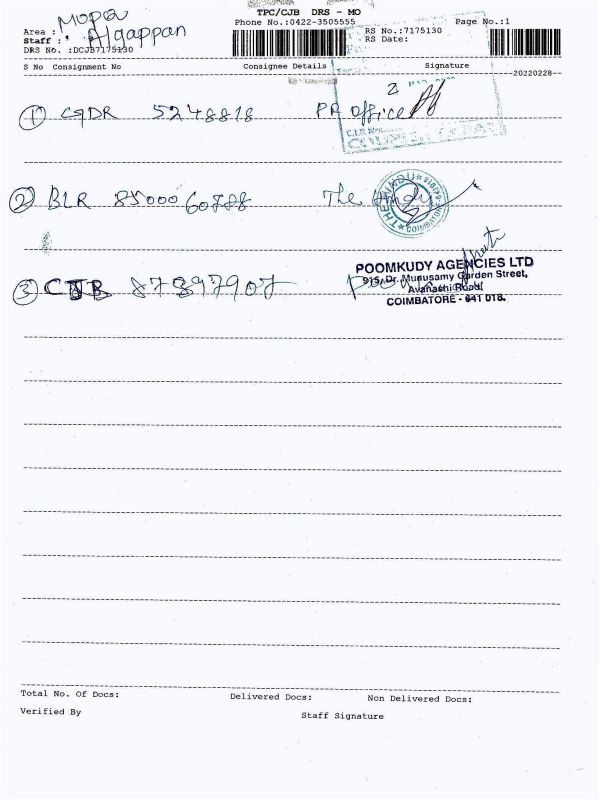 TPC/CJB DRS - MO
Phone No.:0422-3505555
Page No.:1
Area : Mopa
Staff : Algappan
DRS No. :DCJB7175130
RS No.:7175130
RS Date:
S No Consignment No Consignee Details Signature
20220228
① 5248818 PR Office
② BLR 85000 60788 The Hindu
THE HINDU
COIMBATORE
③ CJB 87897907
POOMKUDY AGENCIES LTD
915, Dr. Munusamy Garden Street,
Avanashi Road,
COIMBATORE - 641 018.
Total No. Of Docs: Delivered Docs: Non Delivered Docs:
Verified By Staff Signature